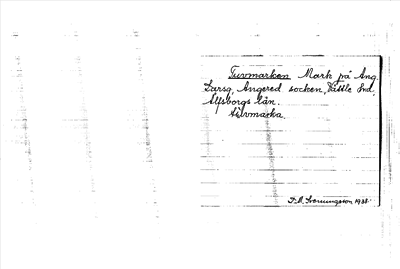 Tuvmarken Mark på Ang.
Larsg, Angered socken, Vättle hd,
Älfsborgs län.
Tuvmarka
1931